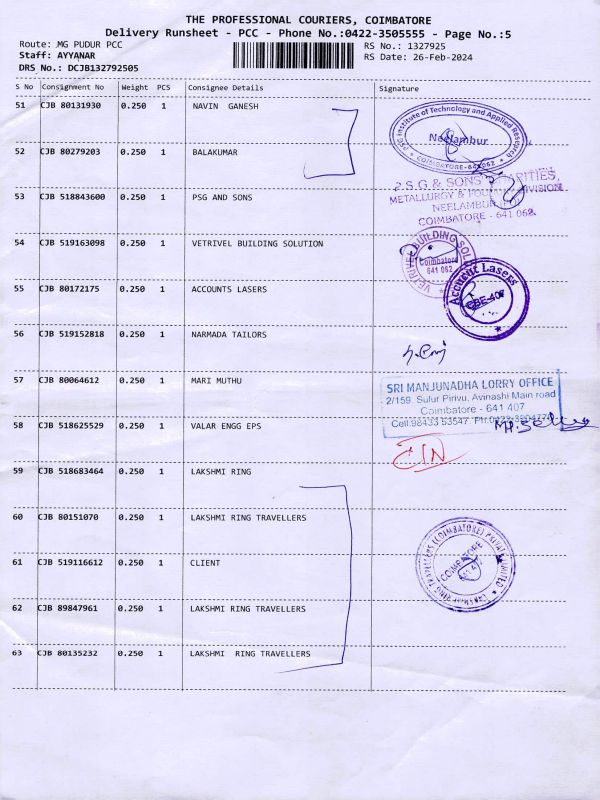 THE PROFESSIONAL COURIERS, COIMBATORE
Delivery Runsheet - PCC - Phone No.:0422-3505555 - Page No.:5
Route: MG PUDUR PCC
RS No.: 1327925
Staff: AYYANAR
RS Date: 26-Feb-2024
DRS No.: DCJB132792505
S No Consignment No Weight PCS Consignee Details Signature
51 CJB 80131930 0.250 1 NAVIN GANESH
PSG Institute of Technology and Applied Research
Neelambur
COIMBATORE-641 062
52 CJB 80279203 0.250 1 BALAKUMAR
P.S.G. & SONS' CHARITIES,
METALLURGY & FOUNDRY DIVISION
53 CJB 518843600 0.250 1 PSG AND SONS
NEELAMBUR
COIMBATORE - 641 062.
54 CJB 519163098 0.250 1 VETRIVEL BUILDING SOLUTION
VETRIVEL BUILDING SOL
Coimbatore
641 062
55 CJB 80172175 0.250 1 ACCOUNTS LASERS
Accurate Lasers
CBE-407
56 CJB 519152818 0.250 1 NARMADA TAILORS
57 CJB 80064612 0.250 1 MARI MUTHU
SRI MANJUNADHA LORRY OFFICE
2/159, Sulur Pirivu, Avinashi Main road
Coimbatore - 641 407
Cell:98433 53547
58 CJB 518625529 0.250 1 VALAR ENGG EPS
59 CJB 518683464 0.250 1 LAKSHMI RING
60 CJB 80151070 0.250 1 LAKSHMI RING TRAVELLERS
LAKSHMI RING TRAVELLERS (COIMBATORE) PRIVATE LIMITED
COIMBATORE
641 407
61 CJB 519116612 0.250 1 CLIENT
62 CJB 89847961 0.250 1 LAKSHMI RING TRAVELLERS
63 CJB 80135232 0.250 1 LAKSHMI RING TRAVELLERS